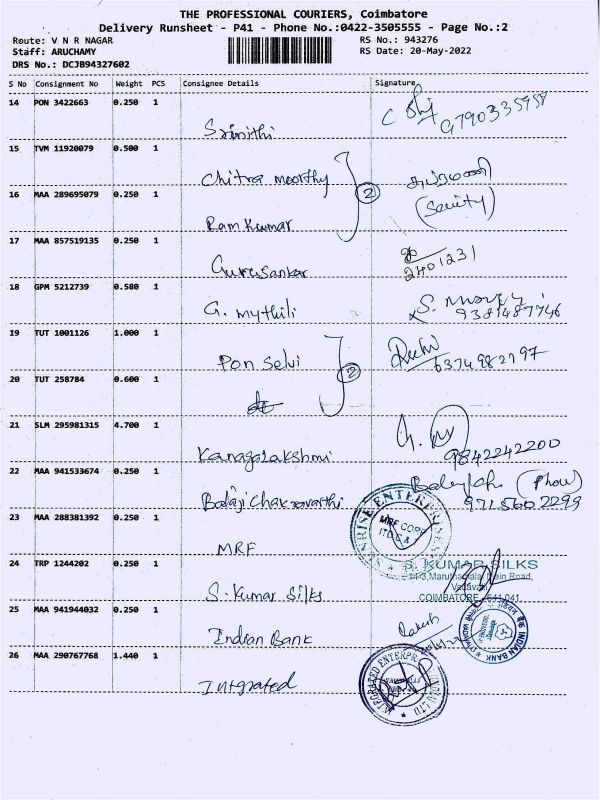 THE PROFESSIONAL COURIERS, Coimbatore
Delivery Runsheet - P41 - Phone No.:0422-3505555 - Page No.:2
Route: V N R NAGAR RS No.: 943276
Staff: ARUCHAMY RS Date: 20-May-2022
DRS No.: DCJB94327602
S No Consignment No Weight PCS Consignee Details Signature
14 PON 3422663 0.250 1
Srinithi 9790335958
15 TVM 11920079 0.500 1
Chitra moorthy
16 MAA 289695079 0.250 1 2
Ram Kumar (Security)
17 MAA 857519135 0.250 1
Gurusankar 2401231
18 GPM 5212739 0.580 1
G. mythili 9381487746
19 TUT 1001126 1.000 1
Pon Selvi 6374982797
20 TUT 258784 0.600 1 2
do
21 SLM 295981315 4.700 1
Kanagalakshmi 9842242200
22 MAA 941533674 0.250 1
Balaji Chakravarthi (Phone) 9715602299
23 MAA 288381392 0.250 1
MRF
MRF CORP
24 TRP 1244202 0.250 1
S. Kumar Silks
S. KUMAR SILKS
Main Road,
COIMBATORE - 641 041.
25 MAA 941944032 0.250 1
Indian Bank Rakesh
INDIAN BANK
26 MAA 290767768 1.440 1
Intgrated